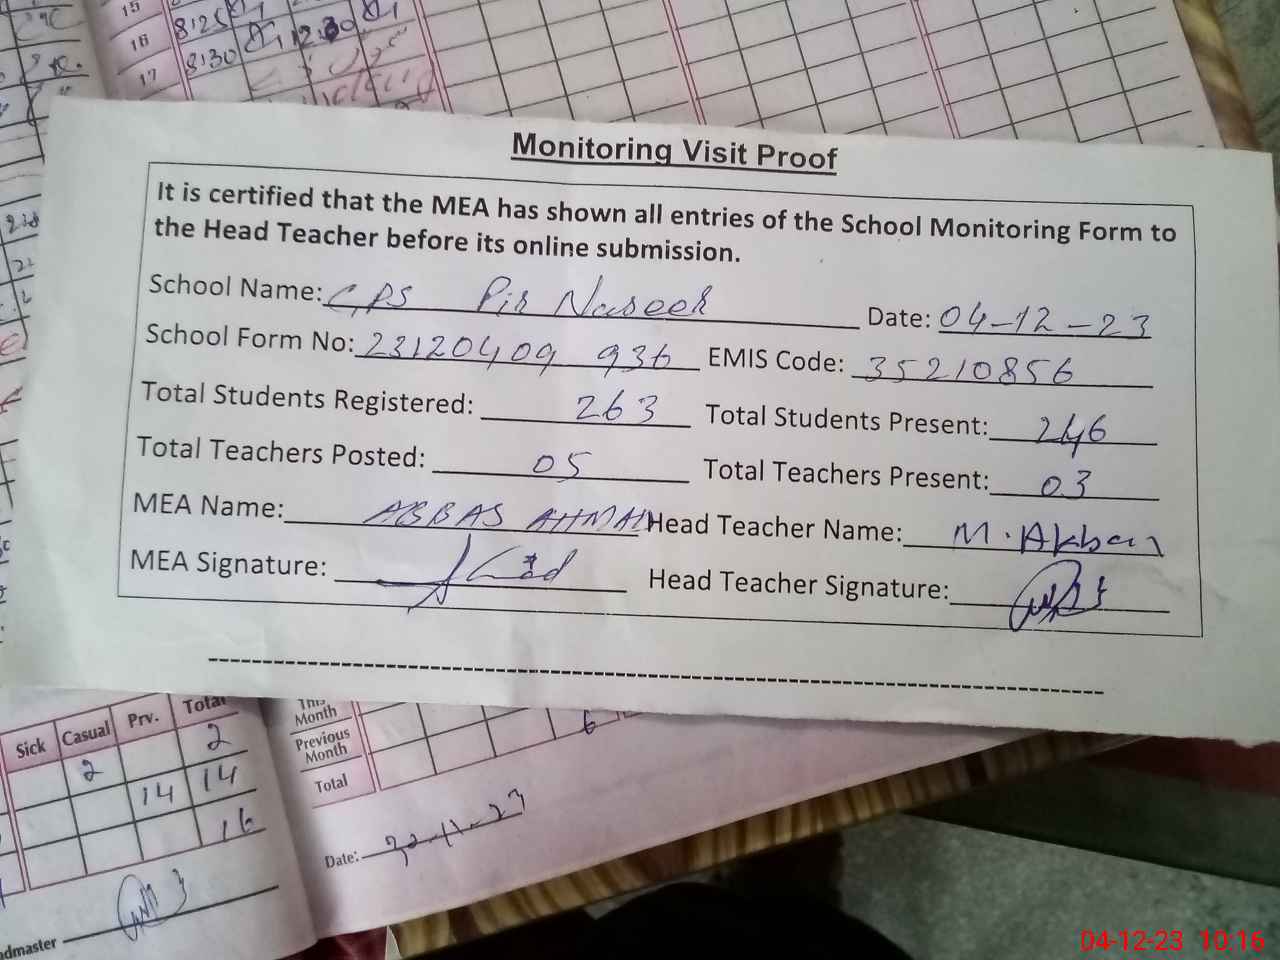 15
16 8:25
17 8:30 12:30
Monitoring Visit Proof
It is certified that the MEA has shown all entries of the School Monitoring Form to
the Head Teacher before its online submission.
School Name: GPS Pir Naseer Date: 04-12-23
School Form No: 23120409 936 EMIS Code: 35210856
Total Students Registered: 263 Total Students Present: 246
Total Teachers Posted: 05 Total Teachers Present: 03
MEA Name: ABBAS AHMAD Head Teacher Name: M. Akbar
MEA Signature: Head Teacher Signature:
Sick Casual Prv. Total
2 2
14 14
16
This Month
Previous Month 6
Total
Date: 30-11-23
dmaster
04-12-23 10:16